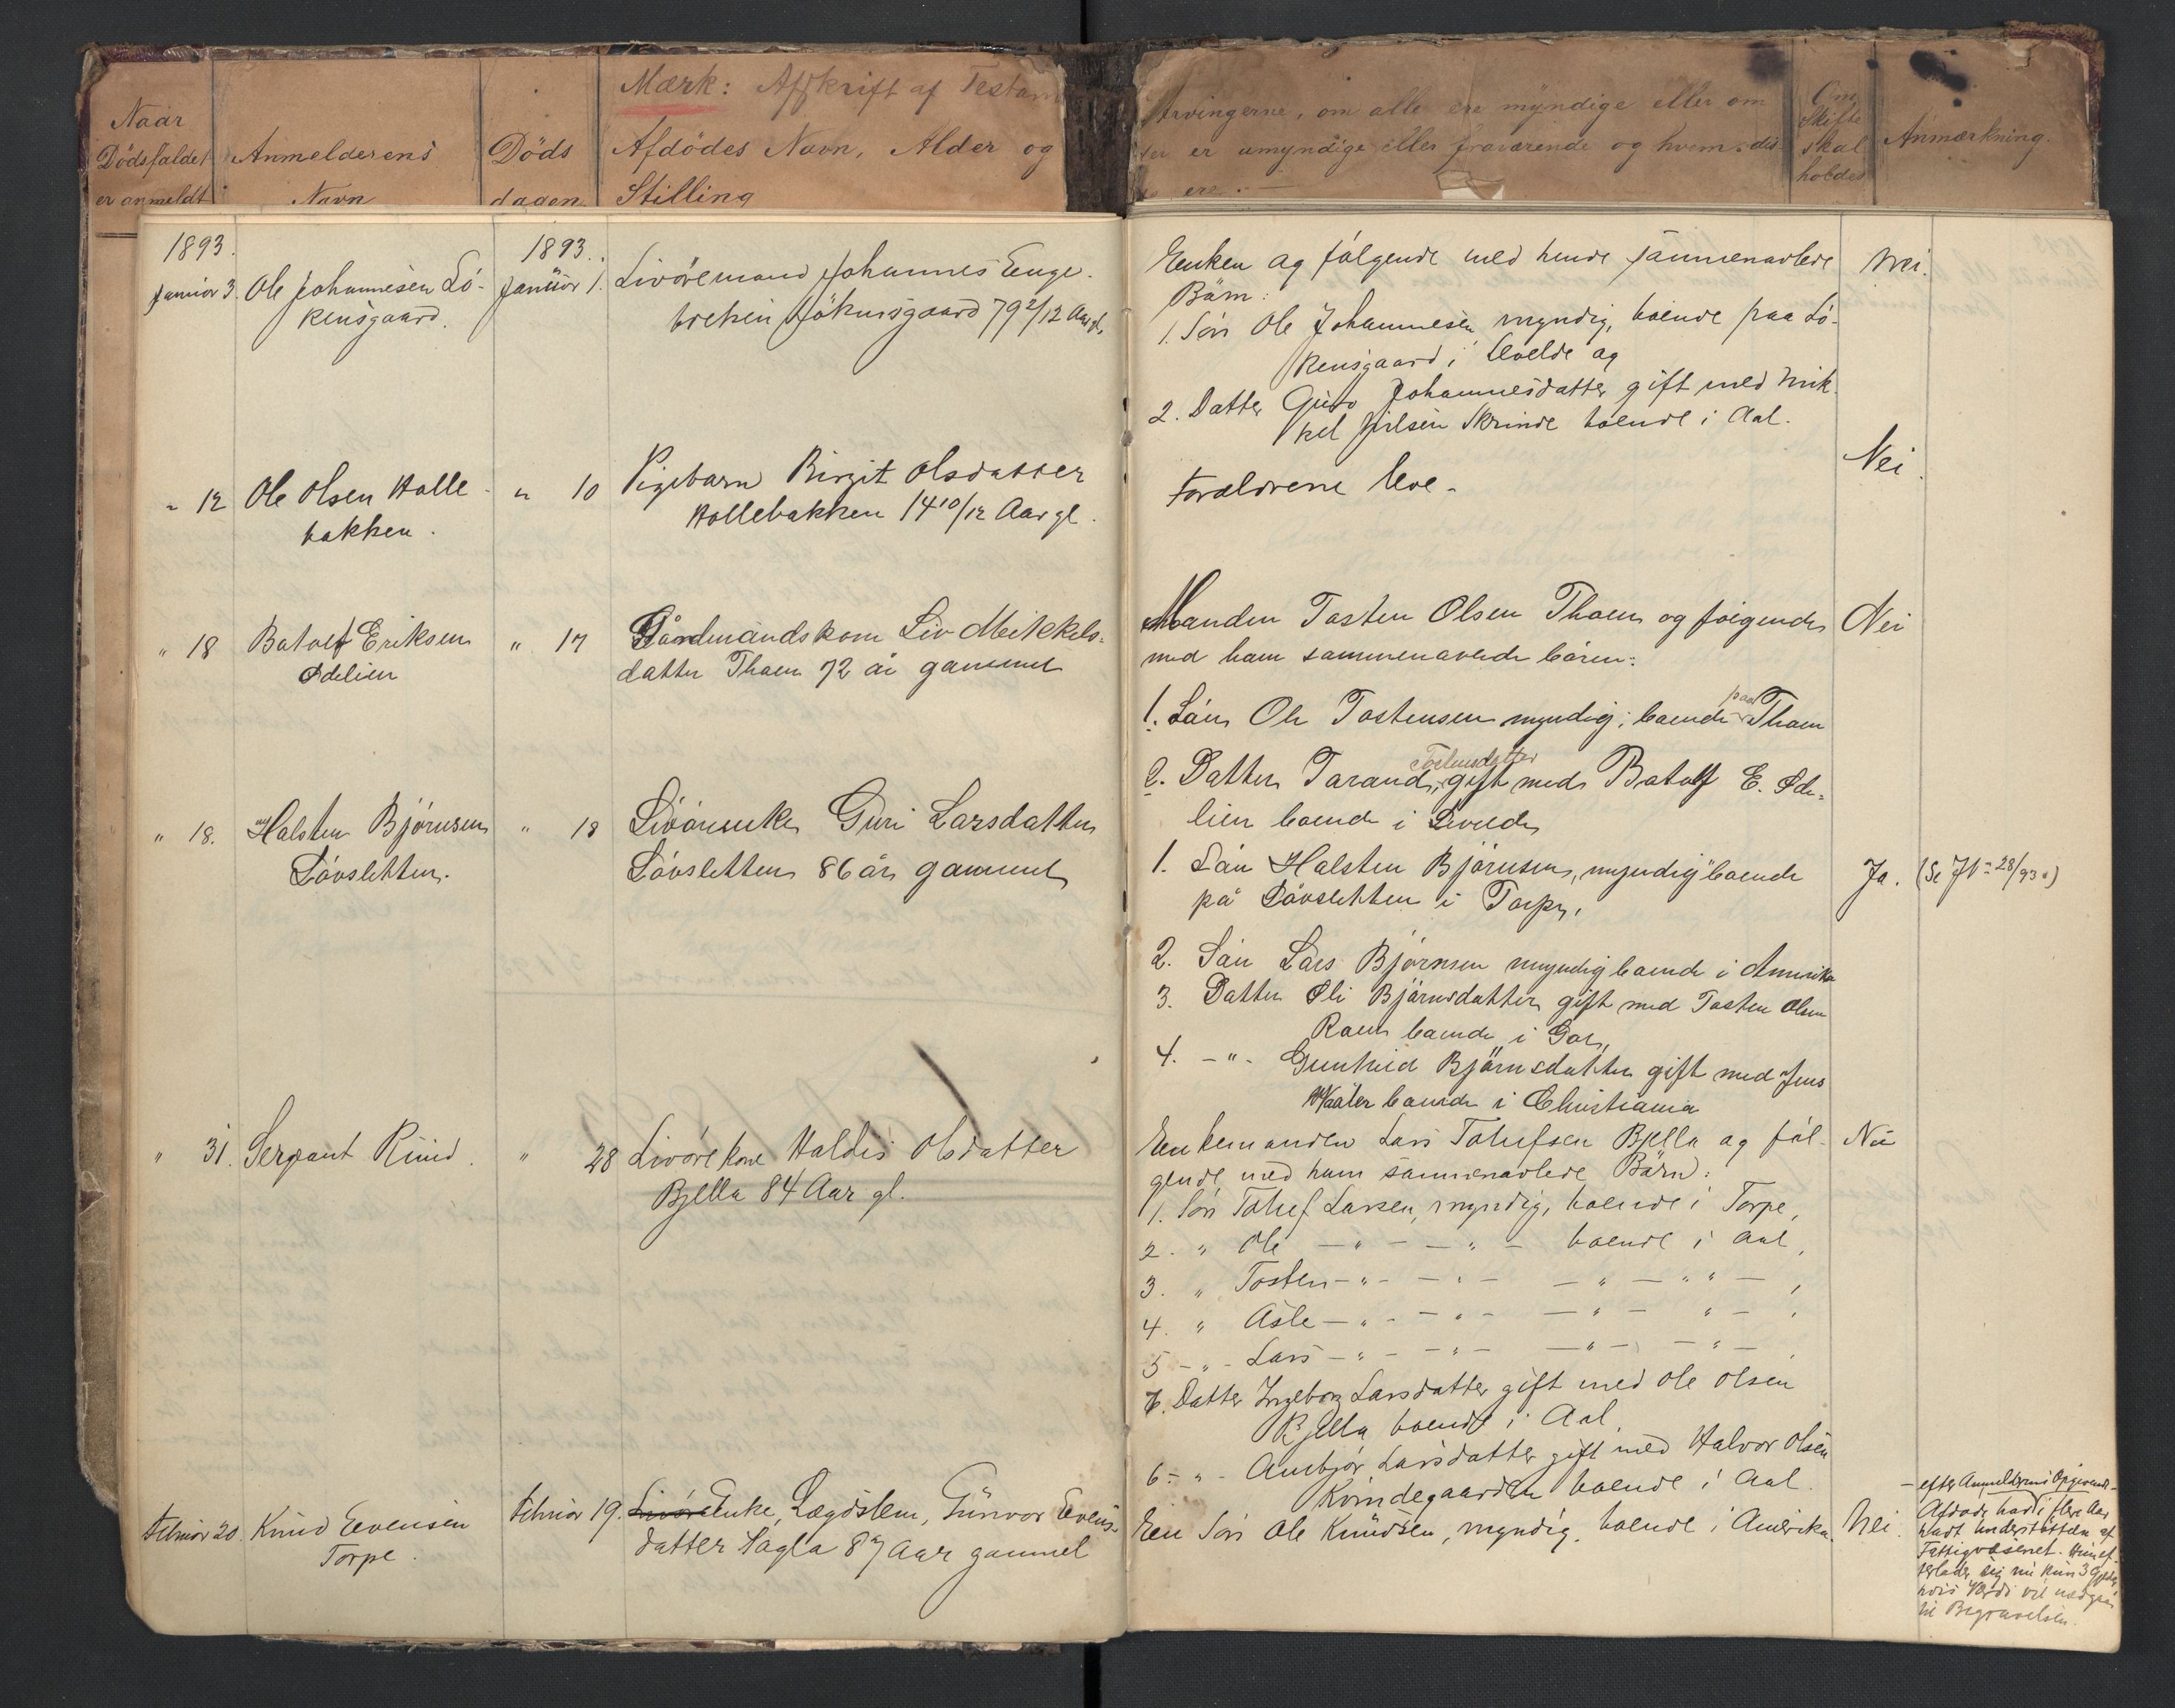 Mærk: Afskrift af
Naar
Dödsfaldet
er anmeldt
Anmelderens
Navn
Döds
dagen
Afdödes Navn, Alder og
Stilling
Arvingerne, om alle ere myndige eller om
er umyndige eller fraværende og hvem
ere.
Om
Skifte
skal
holdes
Anmærkning.
1893.
Januar 3.
Ole Johannesen Lö-
kensgaard.
1893.
Januar 1.
Livöremand Johannes Enge
bretsen Lökensgaard 79 2/12 Aar gl.
Enken og fölgende med hende sammenavlede
Börn:
1. Sön Ole Johannesen myndig, boende paa Lö-
kensgaard i Leveld og
2. Datter Guro Johannesdatter gift med Mik-
kel Nilsen Skrinde boende i Aal.
Nei.
" 12
Ole Olsen Holle-
bakken.
" 10
Pigebarn Birgit Olsdatter
Hollebakken 14 10/12 Aar gl.
Forældrene leve.
Nei.
" 18
Botolf Eriksen
Ödelien
" 17
Gårdmandskone Liv Mikkels-
datter Thoen 72 år gammel
Manden Tosten Olsen Thoen og fölgende
med ham sammenavlede börn:
1. Sön Ole Tostensen myndig, boende paa Thoen
2. Datter Tarand Tostensdatter, gift med Botolf E. Öde-
lien boende i Leveld
Nei
" 18.
Halsten Björnsen
Lövsletten.
" 18
Livörenke Guri Larsdatter
Lövsletten 86 år gammel
1. Sön Halsten Björnsen, myndig boende
på Lövsletten i Torpe,
2. Sön Lars Björnsen myndig boende i Amerika
3. Datter Eli Björnsdatter gift med Tosten Olsen
Roen boende i Gol,
4. -"- Gunhild Björnsdatter gift med Jens
Waaler boende i Christiania
Ja.
(Se JN= 28/93.)
" 31.
Sergeant Rund.
" 28
Livörekone Haldis Olsdatter
Bjella 84 Aar gl.
Enkemanden Lars Tolefsen Bjella og föl-
gende med ham sammenavlede Börn:
1. Sön Tolef Larsen, myndig, boende i Torpe,
2. " Ole - " - - " - boende i Aal,
3. " Tosten - " - - " - - " - " " - ,
4. " Asle - " - - " - - " - " - ,
5 - " - Lars - " - - " - - " - - " - ,
7. Datter Ingeborg Larsdatter gift med Ole Olsen
Bjella boende i Aal,
6 - " - Ambjör Larsdatter gift med Halvor Olsen
Kvindegaarden boende i Aal.
Nei
Februar 20.
Knud Evensen
Torpe.
Februar 19.
Livöre Enke, Lægdslem, Gunvor Evens-
datter Sagla 87 Aar gammel
En Sön Ole Knudsen, myndig, boende i Amerika.
Nei.
- efter Anmelderens Opgivende -
Afdöde havde i flere Aar
havt Understöttelse af
Fattigvæsenet. Hun ef-
terlader sig nu kun 3 Gjeder,
hvis Værdi vil medgaa
til Begravelsen.